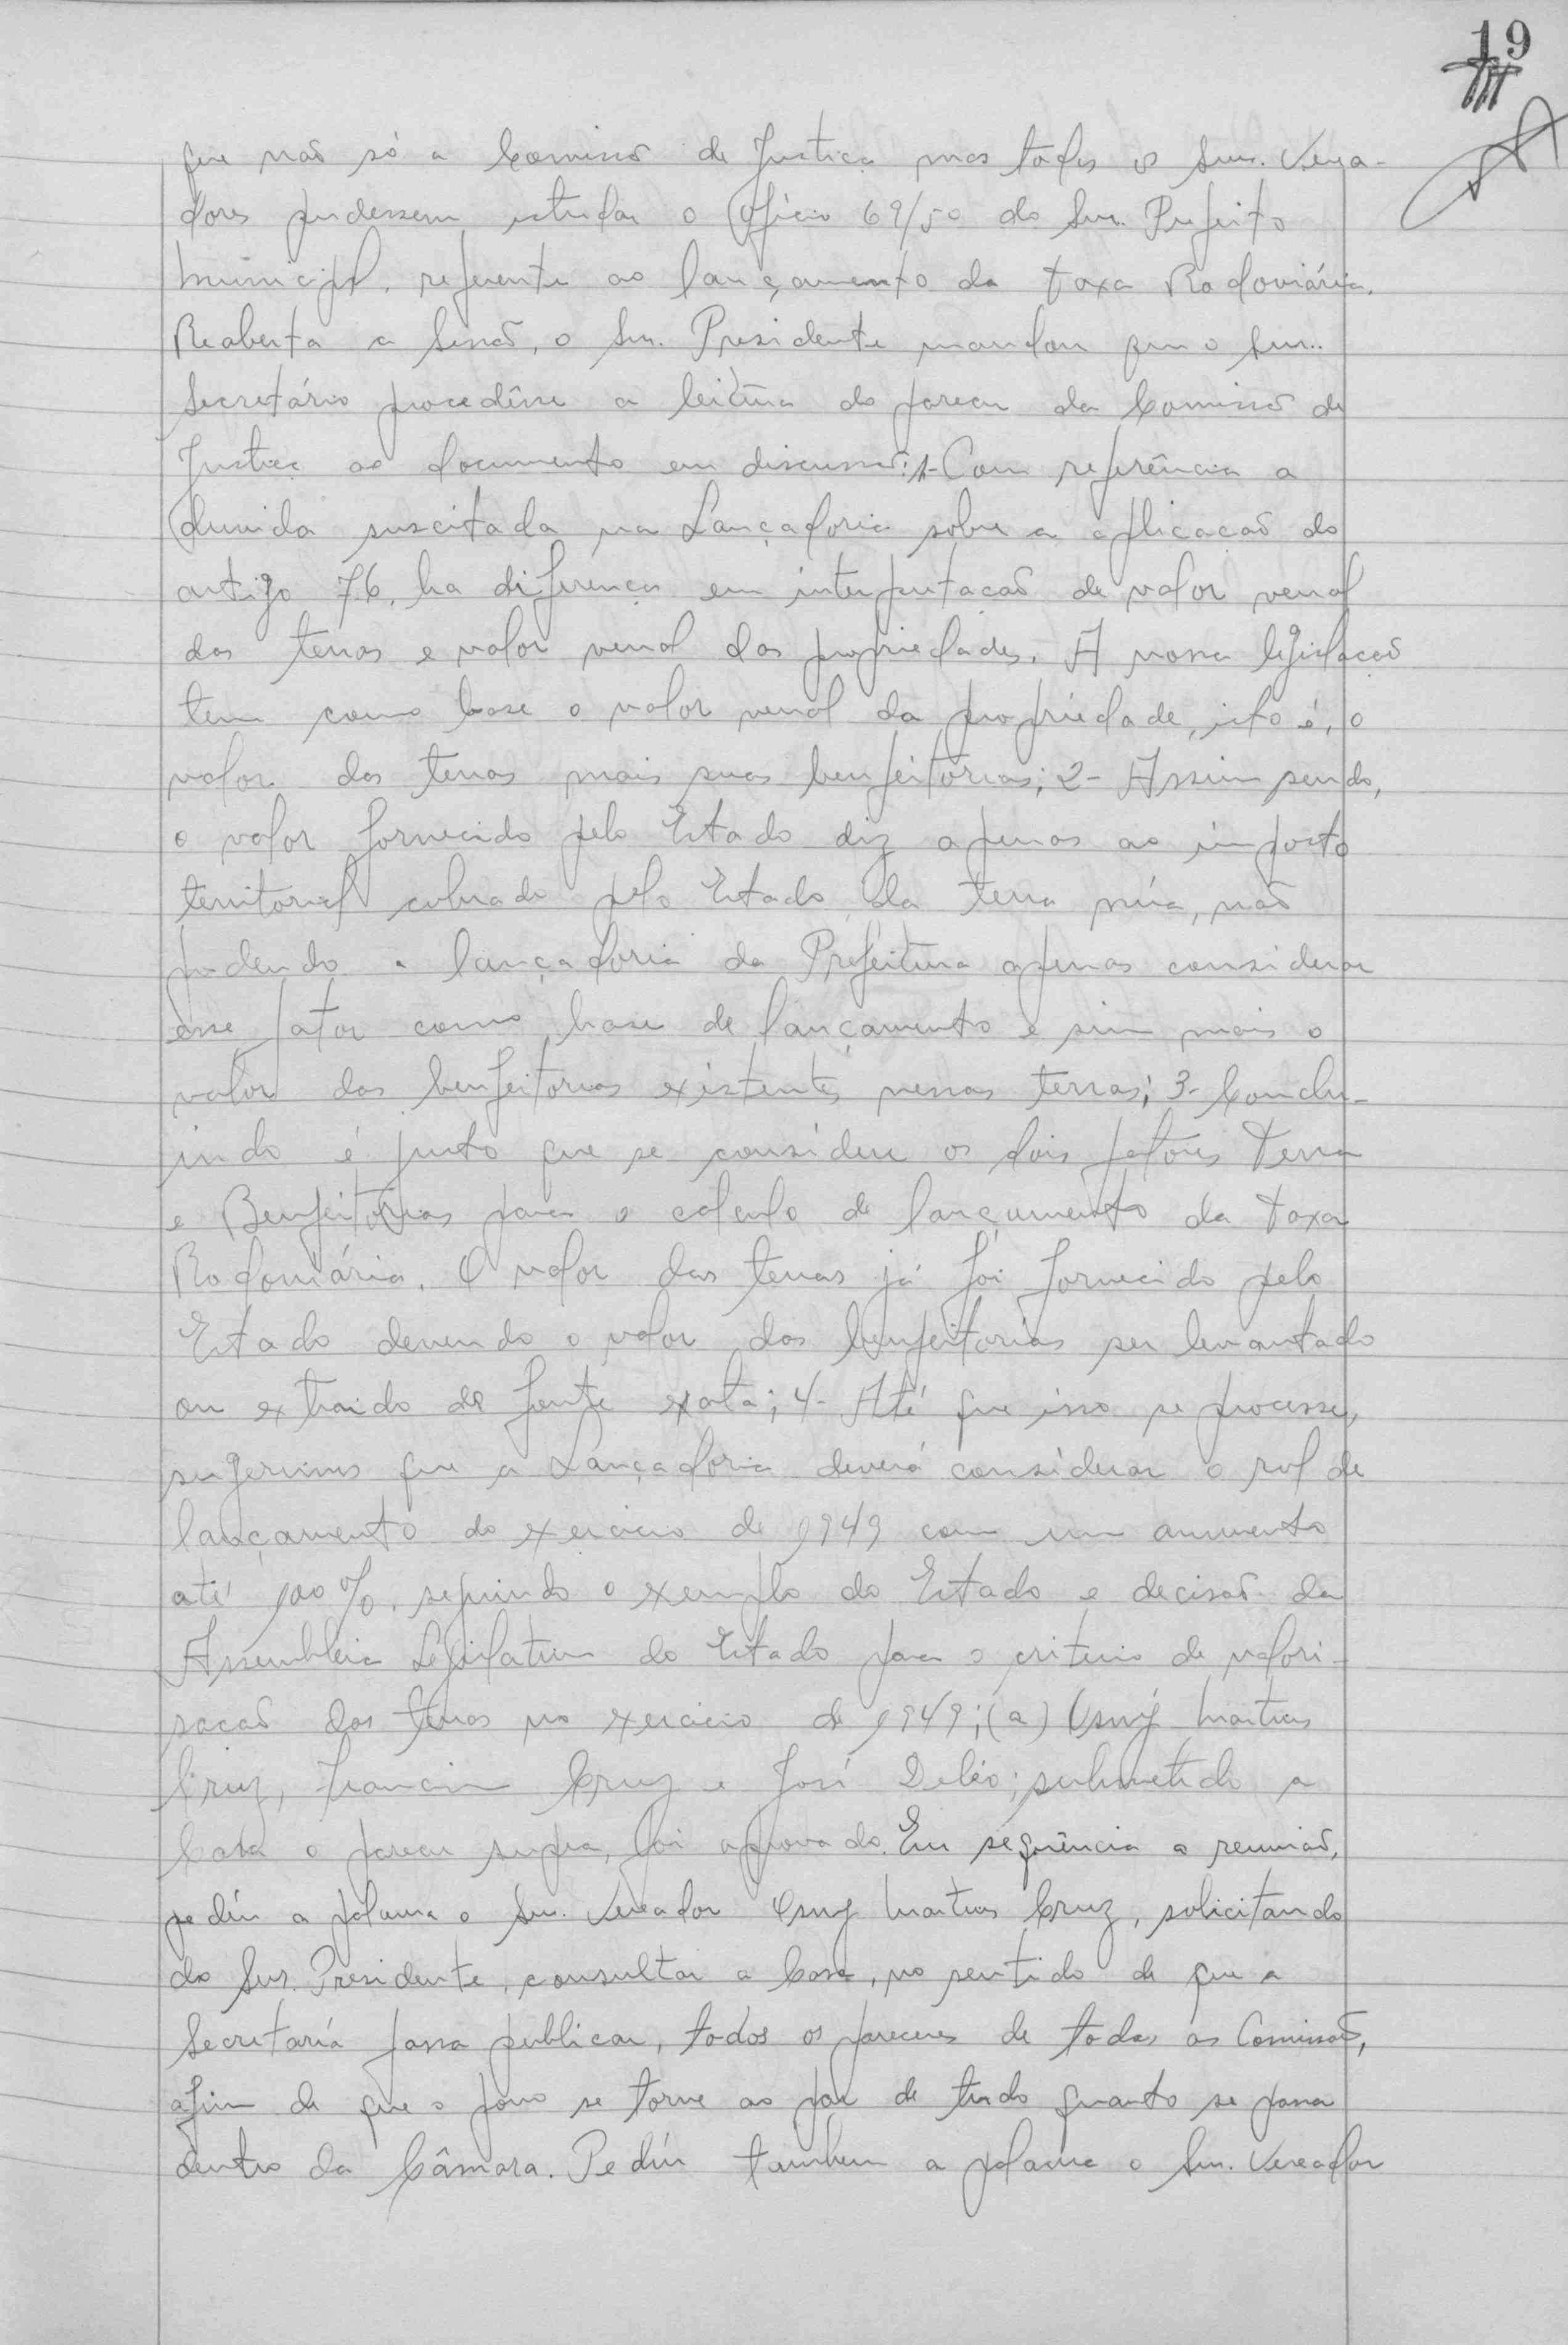 19
que não só a Comissão de Justiça mas todos os Snrs. Verea-
dores pudessem estudar o Ofício 69/50 do Snr. Prefeito
Municipal, referente ao lançamento da taxa Rodoviária.
Reaberta a Sessão, o Snr. Presidente mandou que o Snr.
Secretário procedêsse a leitura do parecer da Comissão de
Justiça ao documento em discussão: 1- Com referência a
duvida suscitada na Lançadoria sobre a aplicação do
artigo 76, ha diferença em interpretação de valor venal
das terras e valor venal das propriedades. A nossa legislação
tem como base o valor venal da propriedade, isto é, o
valor das terras mais suas benfeitorias; 2- Assim sendo,
o valor fornecido pelo Estado diz apenas ao imposto
territorial cobrado pelo Estado da terra núa, não
podendo a lançadoria da Prefeitura apenas considerar
esse fator como base de lançamento e sim mais o
valor das benfeitorias existentes nessas terras; 3- Conclu-
indo é justo que se considere os dois fatores Terra
e Benfeitorias para o calculo de lançamento da taxa
Rodoviária. O valor das terras já foi fornecido pelo
Estado devendo o valor das benfeitorias ser levantado
ou extraido de fonte exata; 4- Até que isso se processe,
sugerimos que a Lançadoria deverá considerar o rol de
lançamento do exercicio de 1949 com um aumento
até 100%, seguindo o exemplo do Estado e decisão da
Assembleia Legislativa do Estado para o criterio de valori-
sação das terras no exercicio de 1949; (a) Osny Martins
Cruz, Cruz e José Deléo; submetido a
Casa o parecer supra, foi aprovado. Em sequência a reunião,
pediu a palavra o Snr. Vereador Osny Martins Cruz, solicitando
do Snr. Presidente, consultar a Casa, no sentido de que a
Secretaría possa publicar, todos os pareceres de todas as Comissões,
afim de que o povo se torne ao par de tudo quanto se passa
dentro da Câmara. Pediu tambem a palavra o Snr. Vereador